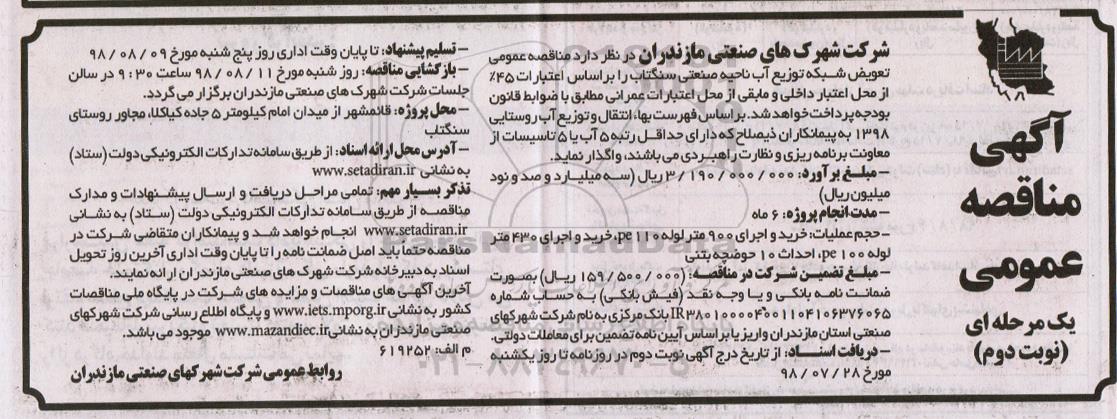 آگهی
مناقصه
عمومی
یک مرحله ای
(نوبت دوم)
شرکت شهرک های صنعتی مازندران در نظر دارد مناقصه عمومی
تعویض شبکه توزیع آب ناحیه صنعتی سنگتاب را براساس اعتبارات ۴۵٪
از محل اعتبار داخلی و مابقی از محل اعتبارات عمرانی مطابق با ضوابط قانون
بودجه پرداخت خواهد شد. براساس فهرست بهاء انتقال و توزیع آب روستایی
۱۳۹۸ به پیمانکاران ذیصلاح که دارای حداقل رتبه ۵ آب یا ۵ تاسیسات از
معاونت برنامه ریزی و نظارت راهبردی می باشند، واگذار نماید.
– مبلغ برآورد: ۳/۱۹۰/۰۰۰/۰۰۰ ریال (سه میلیارد و صد و نود
میلیون ریال)
– مدت انجام پروژه: ۶ ماه
– حجم عملیات: خرید و اجرای ۹۰۰ متر لوله pe ۱۱۰، خرید و اجرای ۴۳۰ متر
لوله pe ۱۰۰، احداث ۱۰ حوضچه بتنی
– مبلغ تضمین شرکت در مناقصه: (۱۵۹/۵۰۰/۰۰۰ ریال) بصورت
ضمانت نامه بانکی و یا وجه نقد (فیش بانکی) به حساب شماره
IR۳۸۰۱۰۰۰۰۴۰۰۱۱۰۴۱۰۶۳۷۶۰۶۵ بانک مرکزی به نام شرکت شهرکهای
صنعتی استان مازندران واریز یا براساس آیین نامه تضمین برای معاملات دولتی.
– دریافت اسناد: از تاریخ درج آگهی نوبت دوم در روزنامه تا روز یکشنبه
مورخ ۹۸/۰۷/۲۸
– تسلیم پیشنهاد: تا پایان وقت اداری روز پنج شنبه مورخ ۹۸/۰۸/۰۹
– بازگشایی مناقصه: روز شنبه مورخ ۹۸/۰۸/۱۱ ساعت ۹:۳۰ در سالن
جلسات شرکت شهرک های صنعتی مازندران برگزار می گردد.
– محل پروژه: قائمشهر از میدان امام کیلومتر ۵ جاده کیاکلا، مجاور روستای
سنگتاب
– آدرس محل ارائه اسناد: از طریق سامانه تدارکات الکترونیکی دولت (ستاد)
به نشانی www.setadiran.ir
تذکر بسیار مهم: تمامی مراحل دریافت و ارسال پیشنهادات و مدارک
مناقصه از طریق سامانه تدارکات الکترونیکی دولت (ستاد) به نشانی
www.setadiran.ir انجام خواهد شد و پیمانکاران متقاضی شرکت در
مناقصه حتماً باید اصل ضمانت نامه را تا پایان وقت اداری آخرین روز تحویل
اسناد به دبیرخانه شرکت شهرک های صنعتی مازندران ارائه نمایند.
آخرین آگهی های مناقصات و مزایده های شرکت در پایگاه ملی مناقصات
کشور به نشانی www.iets.mporg.ir و پایگاه اطلاع رسانی شرکت شهرکهای
صنعتی مازندران به نشانی www.mazandiec.ir موجود می باشد.
م الف: ۶۱۹۲۵۲
روابط عمومی شرکت شهرکهای صنعتی مازندران
ParsNamadData